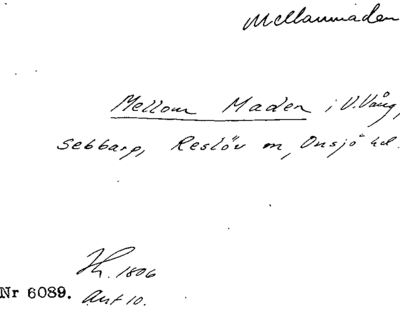 Mellanmaden
Mellom Maden i V. Vång,
Sebbarp, Reslöv m, Onsjö hd.
Ht. 1806
Nr 6089. Akt 10.